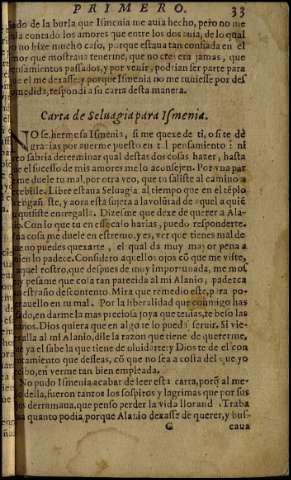 PRIMERO. 33
ſado de la burla que Iſmenia me auia hecho, pero no me
auia contado los amores que entre los dos auia, de lo qual
no hize mucho caſo, parque eſtaua tan confiada en el
mor que moſtraua tenerme, que no crei era jamas, que
penſamientos paſſados, y por venir, podrian ſer parte para
que el me dexaſſe: y porque Iſmenia no me tuuieſſe por deſ
comedida, reſpondi a ſu carta deſta manera.
Carta de Seluagia para Iſmenia.
NO ſe, hermoſa Iſmenia, ſi me quexe de ti, o ſi te dè
gracias por auerme pueſto en tal penſamiento: ni
creo ſabria determinar qual deſtas dos coſas hazer, haſta
que el ſuceſſo de mis amores me lo aconſejen. Por vna par
me duele tu mal, por otra veo, que tu ſaliſte al camino a
recebille. Libre eſtaua Seluagia al tiempo que en el tẽplo
engañaſte, y aora eſta ſujeta a la volũtad de aquel a quiẽ
quiſiſte entregalla. Dizeſme que dexe de querer a Ala-
nio. Con lo que tu en eſſe caſo harias, puedo reſponderte.
coſa me duele en eſtremo, y es, ver que tienes mal de
que no puedes quexarte, el qual da muy mayor pena a
quien lo padece. Conſidero aquellos ojos cõ que me viſte,
aquel roſtro, que deſpues de muy importunada, me moſ
y peſame que coſa tan parecida al mi Alanio, padezca
eſtraño deſcontento. Mira que remedio eſte, para po
auello en tu mal. Por la liberalidad que conmigo has
vſado, en darme la mas precioſa joya que tenias, te beſo las
manos. Dios quiera que en algo te lo pueda ſeruir. Si vie-
alla al mi Alanio, dile la razon que tiene de quererme,
que ya el ſabe la que tiene de oluidarte: y Dios te de el con
tentamiento que deſſeas, cõ que no ſea a coſta del que yo
recibo, en verme tan bien empleada.
No pudo Iſmenia acabar de leer eſta carta, porq̃ al me-
dio della, fueron tantos los ſoſpiros y lagrimas que por ſus
ojos derramaua, que penſo perder la vida llorand. Traba
jaua quanto podia, porque Alanio dexaſſe de querer, y buſ-
G caua